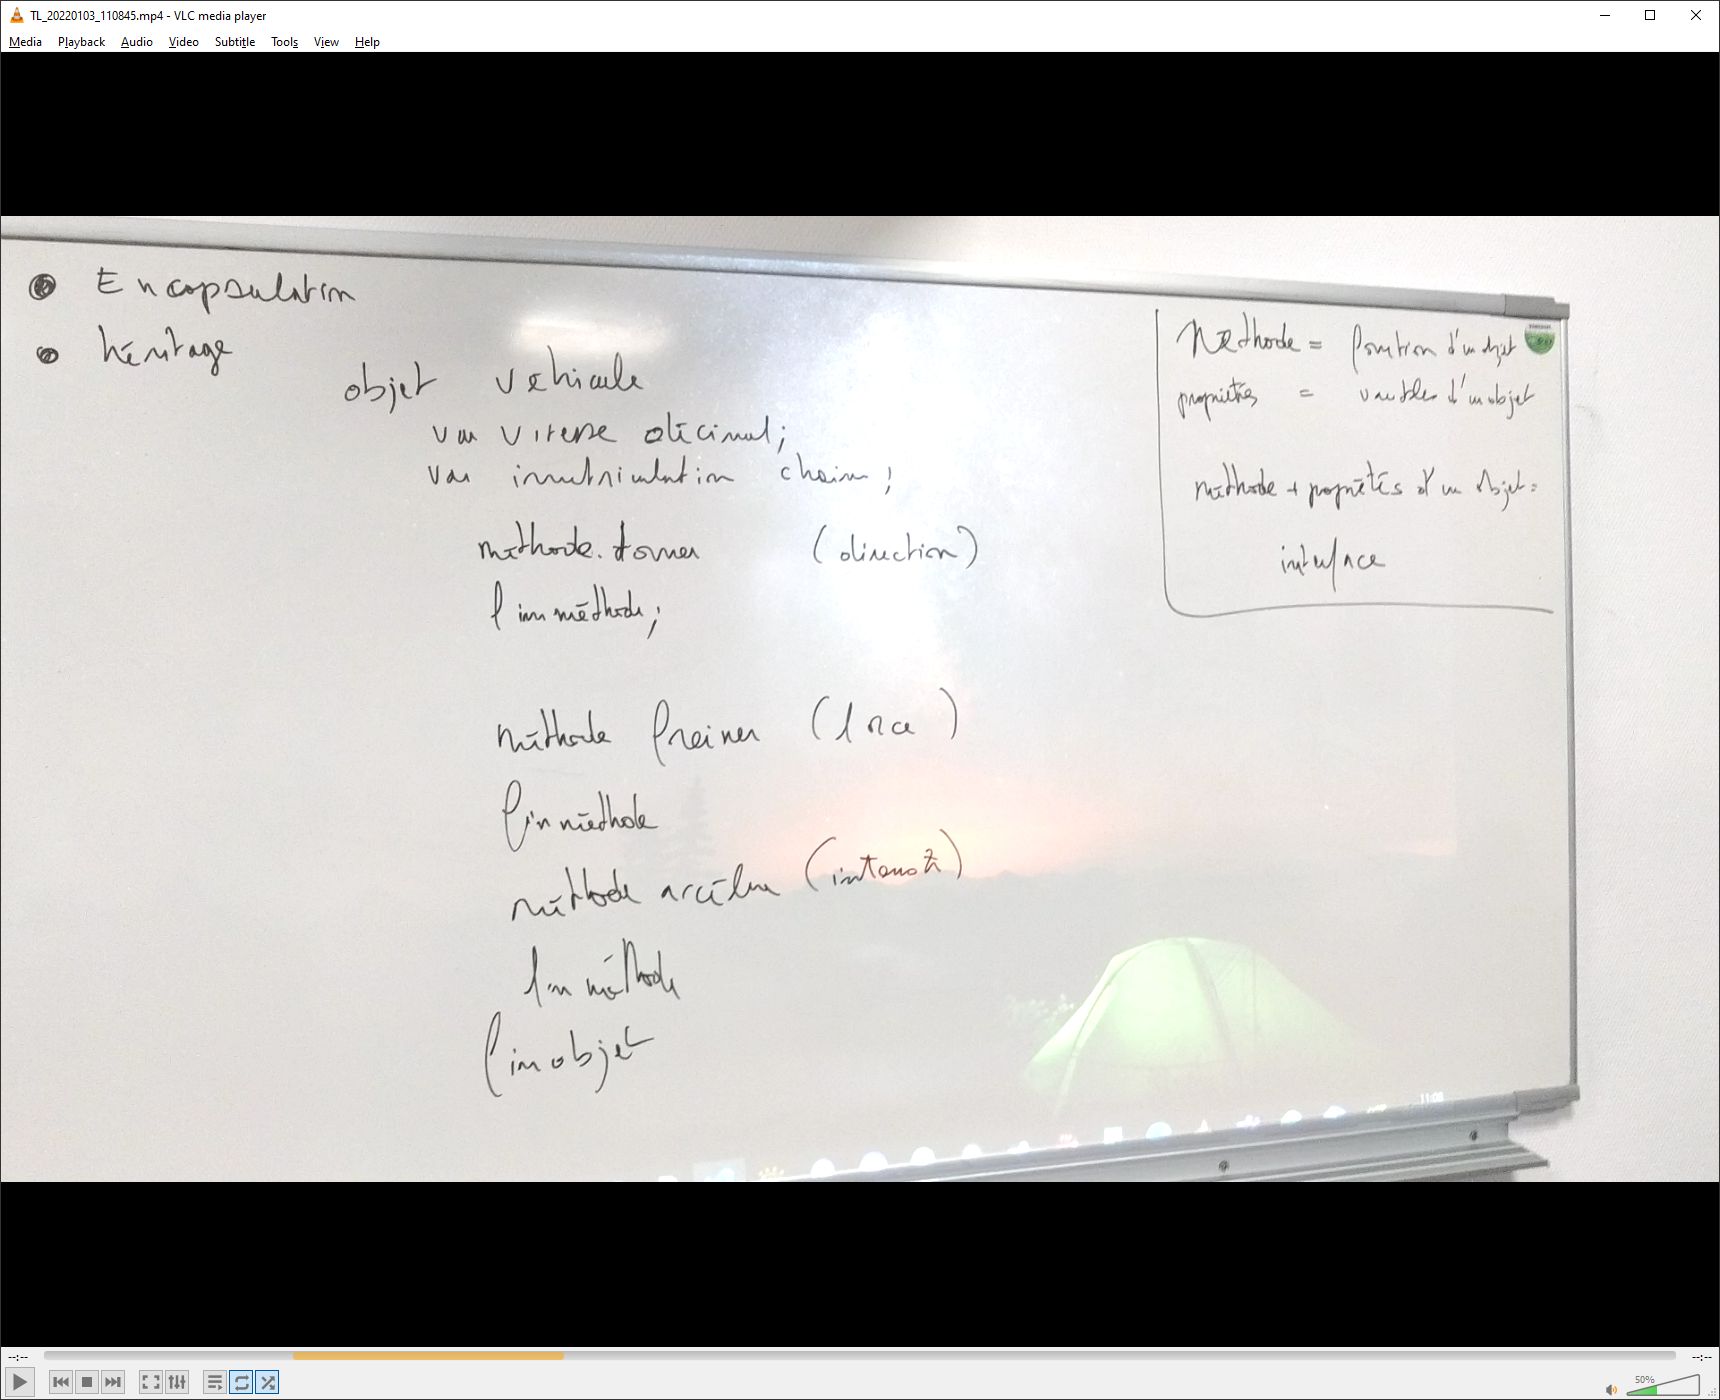 TL_20220103_110845.mp4 - VLC media player
Media Playback Audio Video Subtitle Tools View Help
Encapsulation
héritage
objet véhicule
var vitesse décimal;
var immatriculation chaine;
méthode. tourner (direction)
finméthode;
méthode freiner (force)
finméthode
méthode accélérer (intensité)
finméthode
finobjet
Méthode = fonction d'un objet
propriétés = variables d'un objet
méthode + propriétés d'un objet =
interface
11:08
--:--
--:--
50%